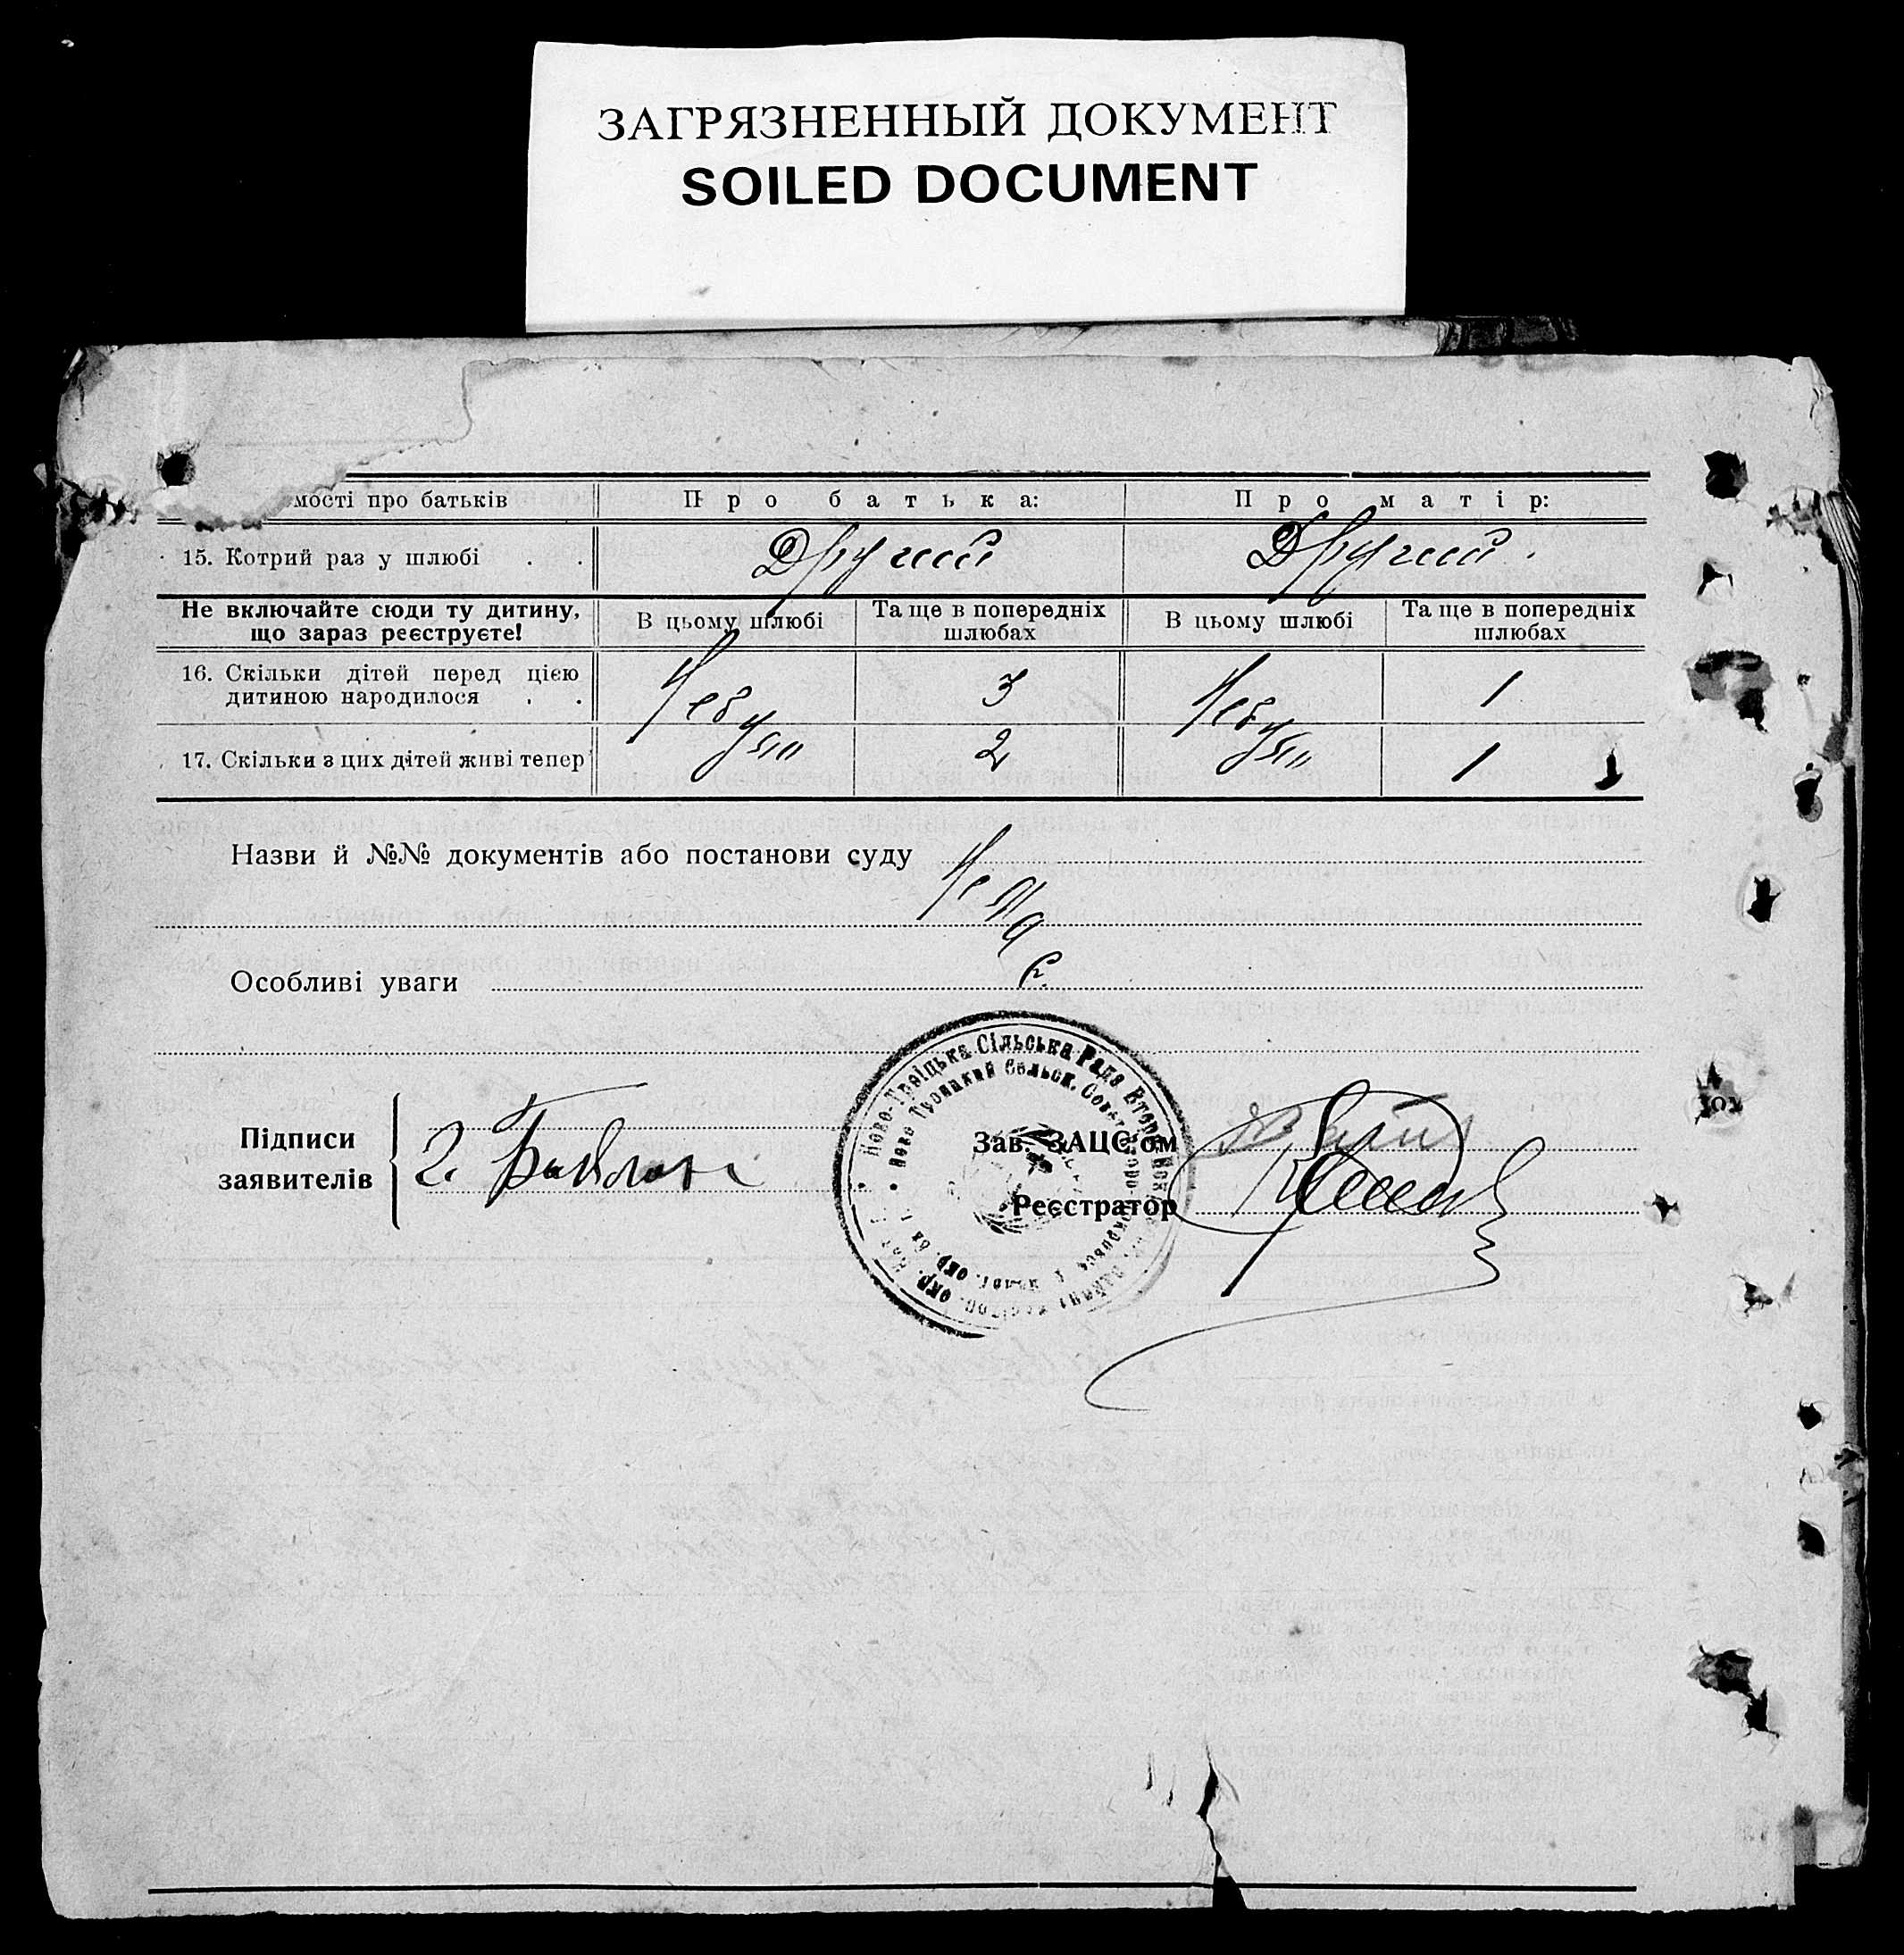 ЗАГРЯЗНЕННЫЙ ДОКУМЕНТ
SOILED DOCUMENT
мості про батьків Про батька: Про матір:
15. Котрий раз у шлюбі . . Другий Другий.
Не включайте сюди ту дитину, що зараз реєструєте! В цьому шлюбі Та ще в попередніх шлюбах В цьому шлюбі Та ще в попередніх шлюбах
16. Скільки дітей перед цією дитиною народилося . . 3 1
17. Скільки з цих дітей живі тепер 2 1
Назви й №№ документів або постанови суду
Особливі уваги
Ново-Троїцька Сільська Рада
Ново Троицкий Сельск.
Підписи заявителів
Зав. ЗАЦС'ом
Реєстратор